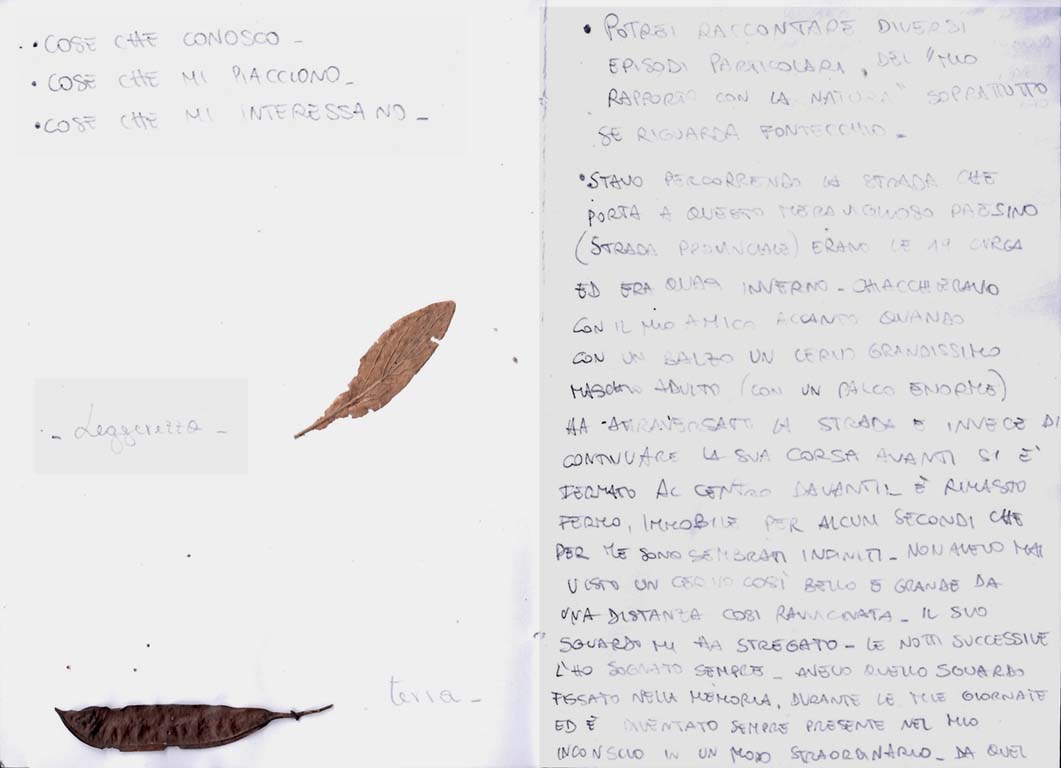 • COSE CHE CONOSCO -
• COSE CHE MI PIACCIONO -
• COSE CHE MI INTERESSANO -
- Leggerezza -
terra -
• POTREI RACCONTARE DIVERSI
EPISODI PARTICOLARI, DEL "MIO
RAPPORTO CON LA NATURA" SOPRATTUTTO
SE RIGUARDA FONTECCHIO -
• STAVO PERCORRENDO LA STRADA CHE
PORTA A QUESTO MERAVIGLIOSO PAESINO
(STRADA PROVINCIALE) ERANO LE 19 CIRCA
ED ERA QUASI INVERNO - CHIACCHIERAVO
CON IL MIO AMICO ACCANTO QUANDO
CON UN BALZO UN CERVO GRANDISSIMO
MASCHIO ADULTO (CON UN PALCO ENORME)
HA ATTRAVERSATO LA STRADA E INVECE DI
CONTINUARE LA SUA CORSA AVANTI SI È
FERMATO AL CENTRO DAVANTI È RIMASTO
FERMO, IMMOBILE PER ALCUNI SECONDI CHE
PER ME SONO SEMBRATI INFINITI - NON AVEVO MAI
VISTO UN CERVO COSÌ BELLO E GRANDE DA
UNA DISTANZA COSÌ RAVVICINATA - IL SUO
SGUARDO MI HA STREGATO - LE NOTTI SUCCESSIVE
L'HO SOGNATO SEMPRE - AVEVO QUELLO SGUARDO
FISSATO NELLA MEMORIA, DURANTE LE MIE GIORNATE
ED È DIVENTATO SEMPRE PRESENTE NEL MIO
INCONSCIO IN UN MODO STRAORDINARIO - DA QUEL